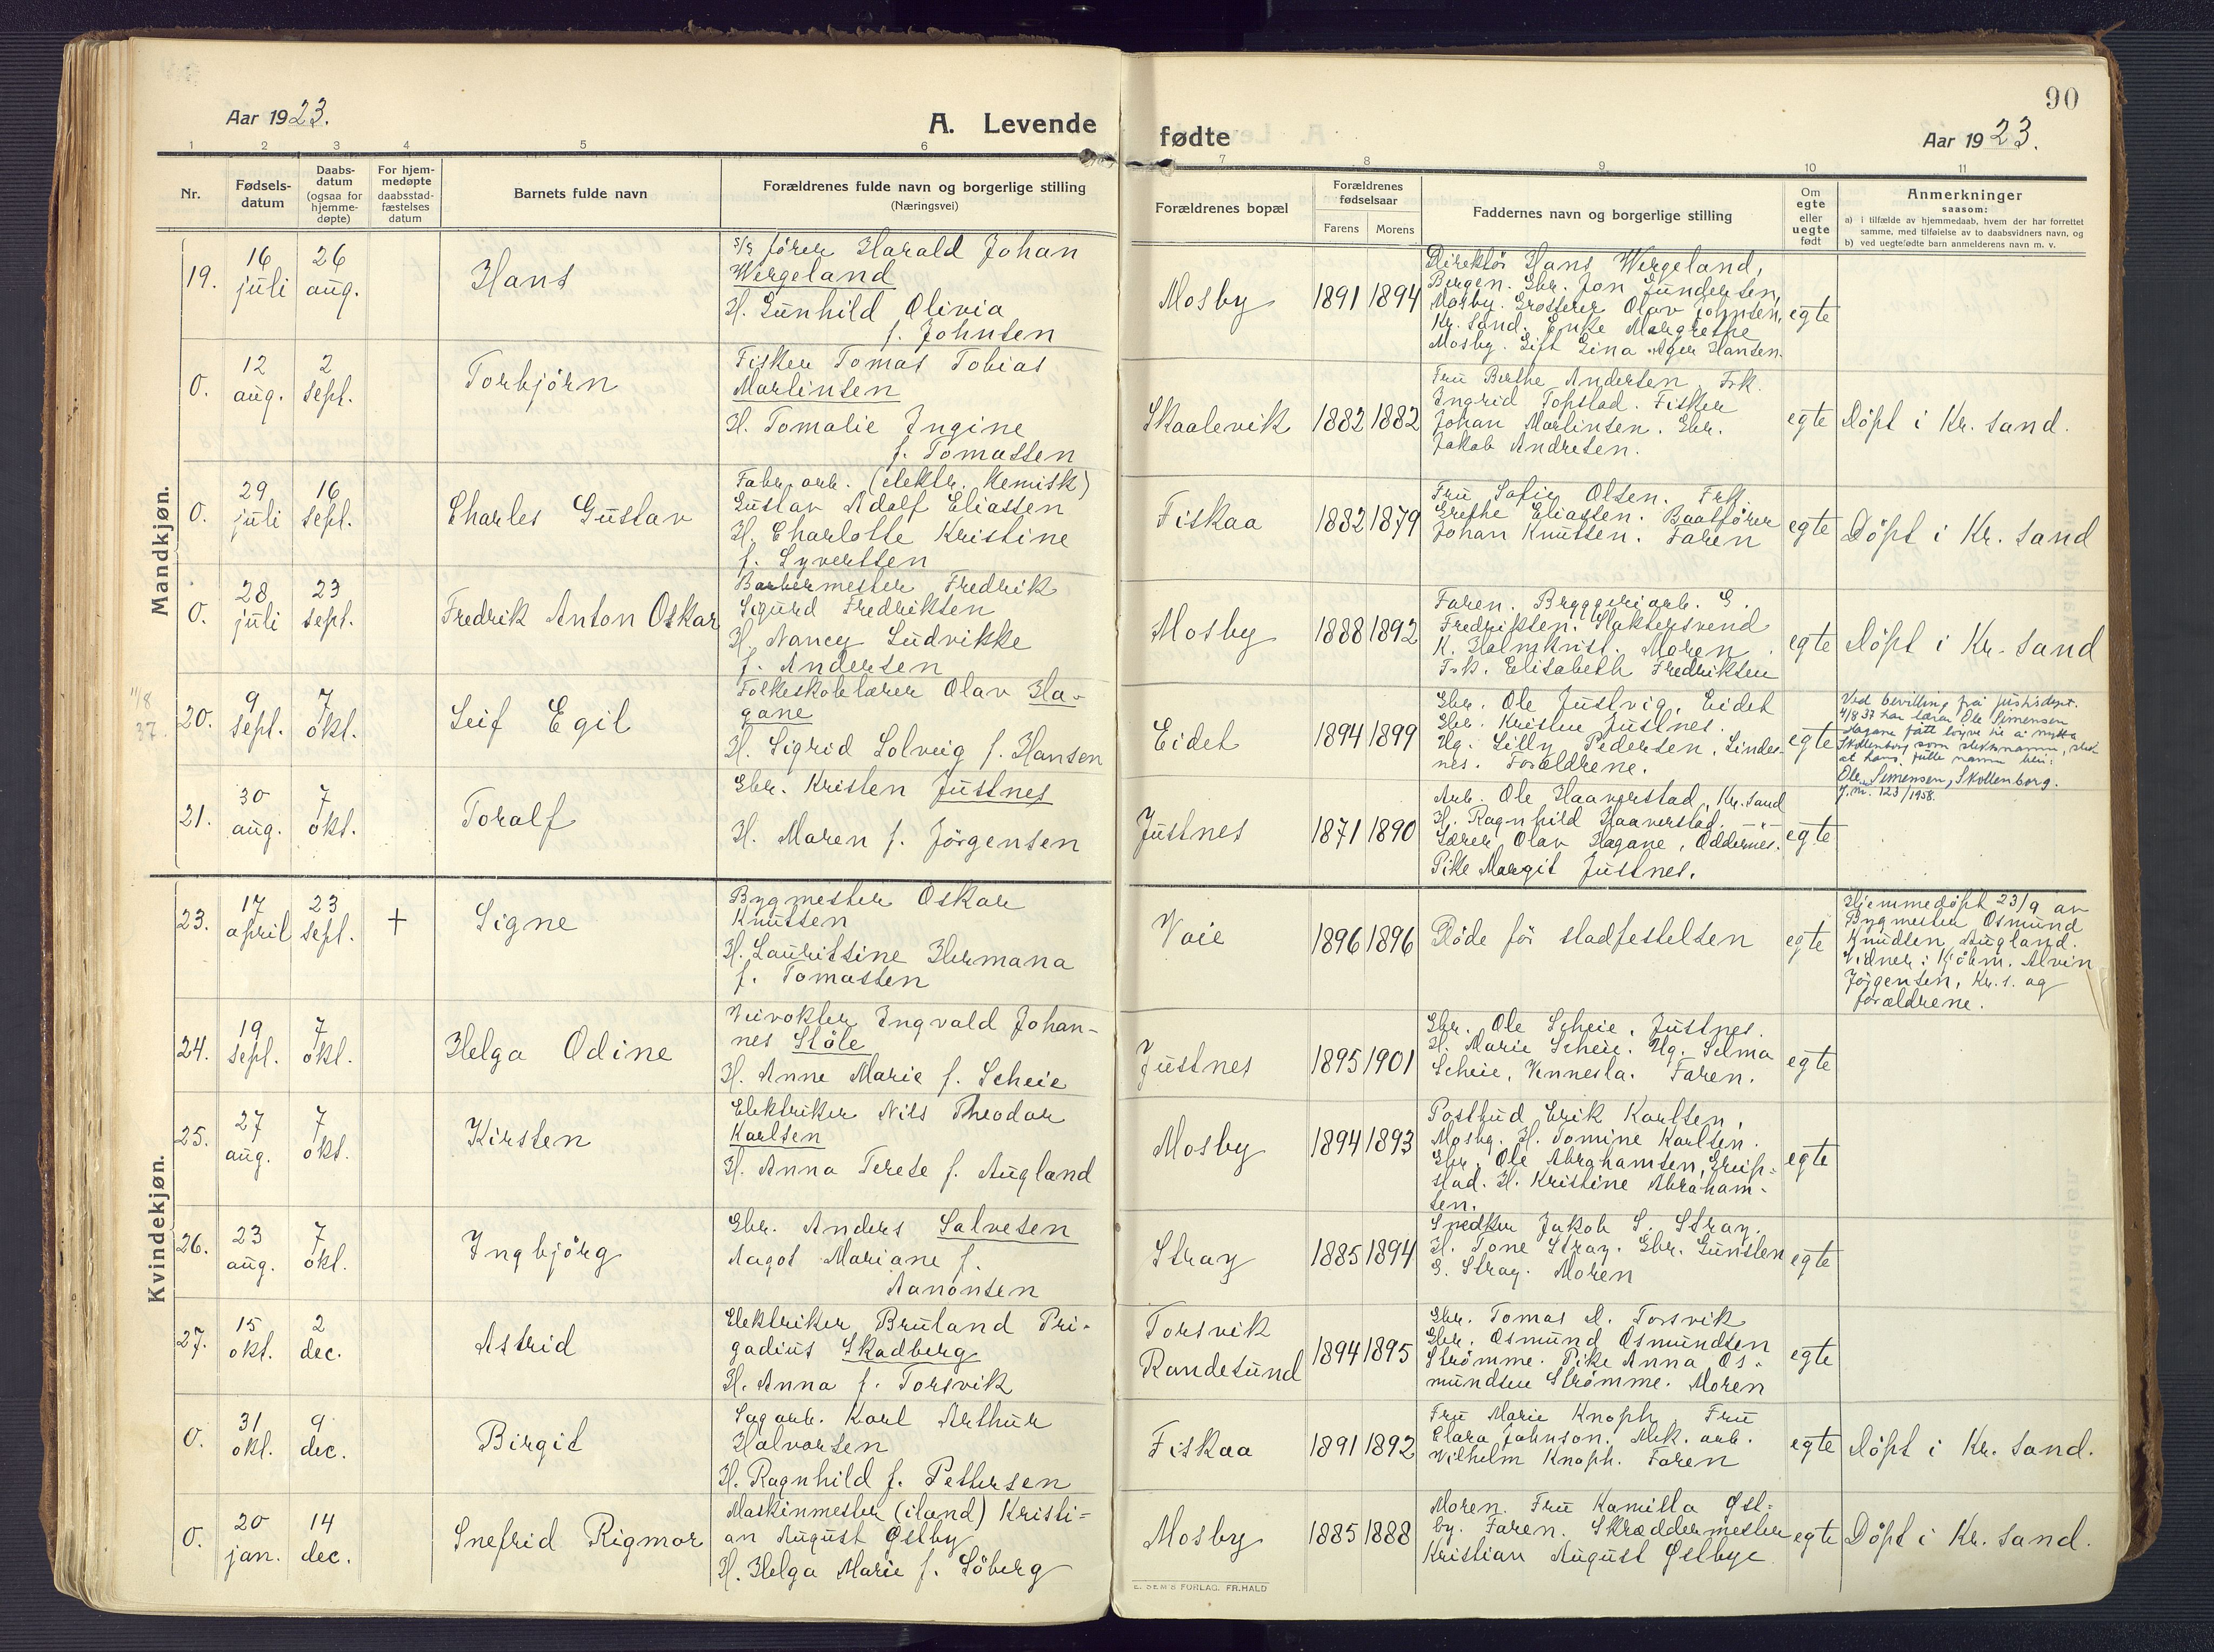 90
Aar 1923.
A. Levende
fødte
Aar 1923.
1 2 3 4 5 6 7 8 9 10 11
Nr.
Fødsels-
datum
Daabs-
datum
(ogsaa for
hjemme-
døpte)
For hjem-
medøpte
daabsstad-
fæstelses
datum
Barnets fulde navn
Forældrenes fulde navn og borgerlige stilling
(Næringsvei)
Forældrenes bopæl
Forældrenes
fødselsaar
Farens Morens
Faddernes navn og borgerlige stilling
Om
egte
eller
uegte
født
Anmerkninger
saasom:
a) i tilfælde av hjemmedaab, hvem der har forrettet
samme, med tilføielse av to daabsvidners navn, og
b) ved uegtefødte barn anmelderens navn m. v.
Mandkjøn.
19.
16
juli
26
aug.
Hans
s/s fører Harald Johan
Wergeland
H. Gunhild Olivia
f. Johnsen
Mosby
1891 1894
Direktør Hans Wergeland,
Bergen. Gbr. Jon Gundersen,
Mosby. Grosserer Olav Johnsen,
Kr. sand. Enke Margrethe
Mosby. Gift Gina Ager Hansen.
egte
0.
12
aug.
2
sept.
Torbjörn
Fisker Tomas Tobias
Martinsen
H. Tomalie Ingine
f. Tomassen
Skaalevik
1882 1882
Fru Berthe Andersen. Frk.
Ingrid Topstad. Fisker
Johan Martinsen. Gbr.
Jakob Andresen.
egte
Döpt i Kr. sand.
0.
29
juli
16
sept.
Charles Gustav
Fabr. arb. (elektr. kemisk)
Gustav Adolf Eliassen
H. Charlotte Kristine
f. Syvertsen
Fiskaa
1882 1879
Fru Sofie Olsen. Frk.
Grethe Eliassen. Baatfører
Johan Knutsen. Faren
egte
Döpt i Kr. sand
0.
28
juli
23
sept.
Fredrik Anton Oskar
Barbermester Fredrik
Sigurd Fredriksen
H. Nancy Ludvikke
f. Andersen
Mosby
1888 1892
Faren. Bryggeriarb. G.
Fredriksen. Slaktersvend
K. Holmkvist. Moren.
Frk. Elisabeth Fredriksen
egte
Döpt i Kr. sand
11/8
37.
20.
9
sept.
7
okt.
Leif Egil
Folkeskolelærer Olav Ha-
gane
H. Sigrid Solveig f. Hansen
Eidet
1894 1899
Gbr. Ole Justvig, Eidet
Gbr. Kristen Justnes.
Ug. Lilly Pedersen, Lindes-
nes. Forældrene.
egte
Ved bevilling frå justisdept.
4/8 37 har lærar Ole Simensen
Hagane fått løyve til å nytta
Skollenborg som slektsnamn, slik
at hans fulle namn blir:
Ole Simensen, Skollenborg.
J.nr. 123/1958.
21.
30
aug.
7
okt.
Toralf
Gbr. Kristen Justnes
H. Maren f. Jörgensen
Justnes
1871 1890
Arb. Ole Haaverstad, Kr. sand
H. Ragnhild Haaverstad. —"—
Lærer Olav Hagane, Oddernes.
Pike Margit Justnes.
egte
Kvindekjøn.
23.
17
april
23
sept.
+
Signe
Bygmester Oskar
Knutsen
H. Lauritsine Hermana
f. Tomassen
Voie
1896 1896
Döde før stadfestelsen
egte
Hjemmedöpt 23/9 av
Bygmester Osmund
Knudsen, Augland.
Vidner: Kjöbm. Alvin
Jörgensen, Kr. s. og
forældrene.
24.
19
sept.
7
okt.
Helga Odine
Veivokter Ingvald Johan-
nes Stöle
H. Anne Marie f. Scheie
Justnes
1895 1901
Gbr. Ole Scheie, Justnes.
H. Marie Scheie. Ug. Selma
Scheie, Vennesla. Faren.
egte
25.
27
aug.
7
okt.
Kirsten
Elektriker Nils Theodor
Karlsen
H. Anna Terese f. Augland
Mosby
1894 1893
Postbud Erik Karlsen,
Mosby. H. Tomine Karlsen.
Gbr. Ole Abrahamsen, Greip-
stad. H. Kristine Abraham-
sen.
egte
26.
23
aug.
7
okt.
Ingbjörg
Gbr. Anders Salvesen
Aagot Mariane f.
Aanonsen
Stray
1885 1894
Snedker Jakob S. Stray.
H. Tone Stray. Gbr. Gunsten
G. Stray. Moren
egte
27.
15
okt.
2
dec.
Astrid
Elektriker Bruland Pri-
gadius Skadberg
H. Anna f. Torsvik
Torsvik
Randesund
1894 1895
Gbr. Tomas D. Torsvik
Gbr. Osmund Osmundsen
Strömme. Pike Anna Os-
mundsen Strömme. Moren
egte
0.
31
okt.
9
dec.
Birgit
Sagarb. Karl Arthur
Halvorsen
H. Ragnhild f. Pettersen
Fiskaa
1891 1892
Fru Marie Knoph. Fru
Clara Johnson. Mek. arb.
Wilhelm Knoph. Faren
egte
Döpt i Kr. sand.
0.
20
jan.
14
dec.
Snefrid Rigmor
Maskinmester (iland) Kristi-
an August Østby
H. Helga Marie f. Söberg
Mosby
1885 1888
Moren. Fru Kamilla Øst-
by. Faren. Skræddermester
Kristian August Østbye
egte
Döpt i Kr. sand.
E. SEM'S FORLAG. FR.HALD